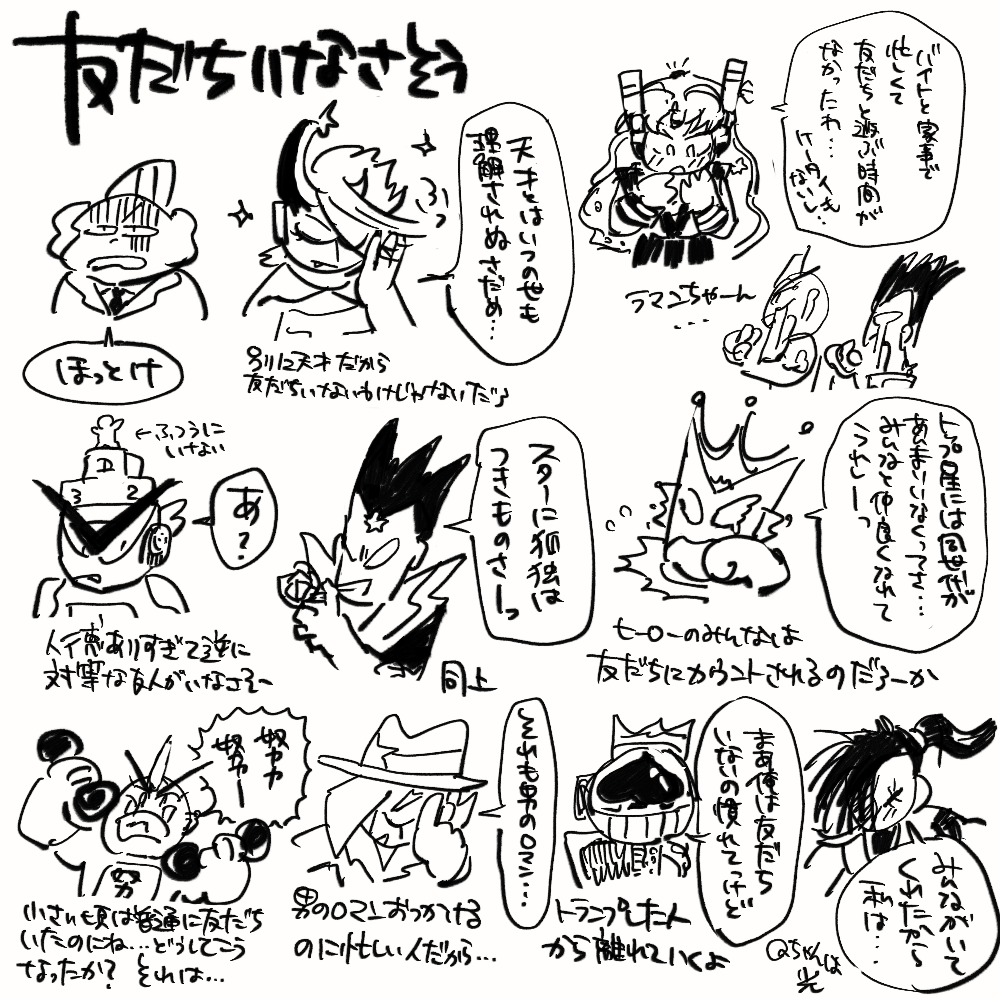 友だちいなさそう
バイトと家事で
忙しくて
友だちと遊ぶ時間が
なかったわ…
ケータイも
ないし…
ラマンちゃーん
…
天才とはいつの世も
理解されぬさだめ…
ふっ
別に天才だから
友だちいないわけじゃないだろ
ほっとけ
←ふつうに
いけない
D
3 2
あ?
人徳ありすぎて逆に
対等な友人がいなさそ〜
スターに孤独は
つきものさーっ
同上
トップ星には同世代が
あんまりいなくってさ…
みんなと仲良くなれて
うれしーっ
ヒーローのみんなは
友だちにカウントされるのだろーか
努力
努力ー
努
小さい頃は普通に友だち
いたのにね…どうしてこう
なったか? それは…
それも男のロマン…
男のロマンおっかけてる
のに忙しい人だから…
まあ俺は友だち
いないの慣れてっけど
トランプした人
から離れていくよ
みんながいて
くれたから
私は…
Qちゃんは
光